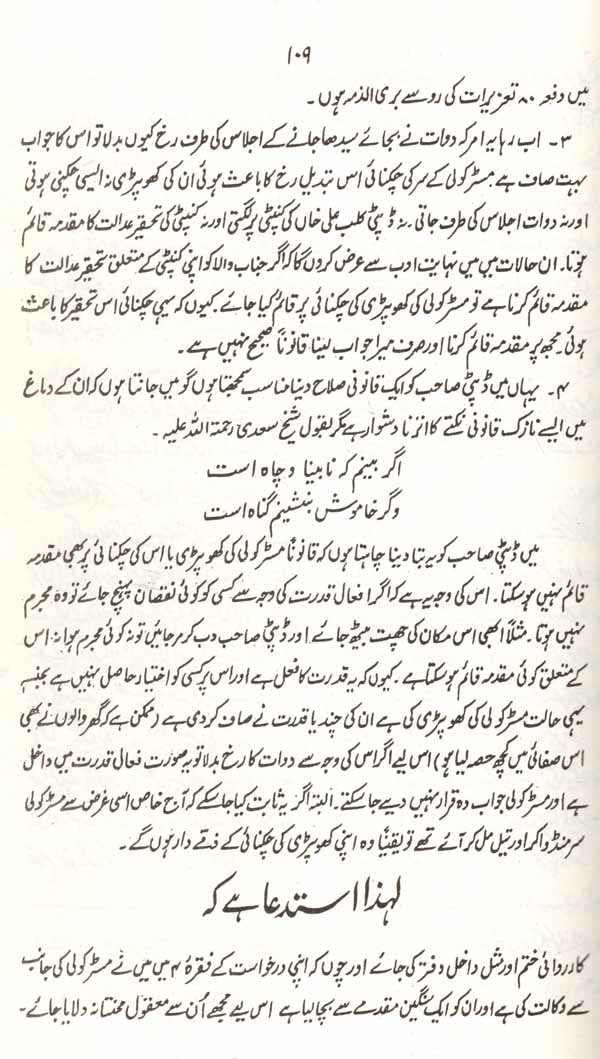 ۱۰۹
میں دفعہ ۸۰ تعزیرات کی رو سے بری الذمہ ہوں۔
۳۔ اب رہا یہ امر کہ دوات نے بجائے سیدھا جانے کے اجلاس کی طرف رخ کیوں بدلا تو اس کا جواب
بہت صاف ہے۔ مسٹر کولی کے سر کی چکنائی اس تبدیل رخ کا باعث ہوئی ان کی کھوپڑی نہ ایسی چکنی ہوتی
اور نہ دوات اجلاس کی طرف جاتی۔ نہ ڈپٹی کلب علی خاں کی کنپٹی پر لگتی اور نہ کنپٹی کی تحقیر عدالت کا مقدمہ قائم
ہوتا۔ ان حالات میں میں نہایت ادب سے عرض کروں گا کہ اگر جناب والا کو اپنی کنپٹی کے متعلق تحقیر عدالت کا
مقدمہ قائم کرنا ہے تو مسٹر کولی کی کھوپڑی کی چکنائی پر قائم کیا جائے۔ کیوں کہ یہی چکنائی اس تحقیر کا باعث
ہوئی۔ مجھ پر مقدمہ قائم کرنا اور صرف میرا جواب لینا قانوناً صحیح نہیں ہے۔
۴۔ یہاں میں ڈپٹی صاحب کو ایک قانونی صلاح دینا مناسب سمجھتا ہوں گو میں جانتا ہوں کہ ان کے دماغ
میں ایسے نازک قانونی نکتے کا اترنا دشوار ہے مگر بقول شیخ سعدی رحمۃ اللہ علیہ۔
اگر بینم کہ نابینا و چاہ است
وگر خاموش بنشینم گناہ است
میں ڈپٹی صاحب کو یہ بتا دینا چاہتا ہوں کہ قانوناً مسٹر کولی کی کھوپڑی یا اس کی چکنائی پر بھی مقدمہ
قائم نہیں ہو سکتا۔ اس کی وجہ یہ ہے کہ اگر افعال قدرت کی وجہ سے کسی کو کوئی نقصان پہنچ جائے تو وہ مجرم
نہیں ہوتا۔ مثلاً ابھی اس مکان کی چھت بیٹھ جائے اور ڈپٹی صاحب دب کر مر جائیں تو نہ کوئی مجرم ہوا نہ اس
کے متعلق کوئی مقدمہ قائم ہو سکتا ہے۔ کیوں کہ یہ قدرت کا فعل ہے اور اس پر کسی کو اختیار حاصل نہیں ہے بجنسہٖ
یہی حالت مسٹر کولی کی کھوپڑی کی ہے ان کی چندیا قدرت نے صاف کر دی ہے (ممکن ہے کہ گھر والوں نے بھی
اس صفائی میں کچھ حصہ لیا ہو) اس لیے اگر اس کی وجہ سے دوات کا رخ بدلا تو یہ صورت فعال قدرت میں داخل
ہے اور مسٹر کولی جواب دہ قرار نہیں دیے جا سکتے۔ البتہ اگر یہ ثابت کیا جا سکے کہ آج خاص اسی غرض سے مسٹر کولی
سر منڈوا کر اور تیل مل کر آئے تھے تو یقیناً وہ اپنی کھوپڑی کی چکنائی کے ذمے دار ہوں گے۔
لہذا استدعا ہے کہ
کارروائی ختم اور مثل داخل دفتر کی جائے اور چوں کہ اپنی درخواست کے فقرۂ ۴ میں میں نے مسٹر کولی کی جانب
سے وکالت کی ہے اور ان کو ایک سنگین مقدمے سے بچا لیا ہے اس لیے مجھے اُن سے معقول محنتانہ دلایا جائے۔